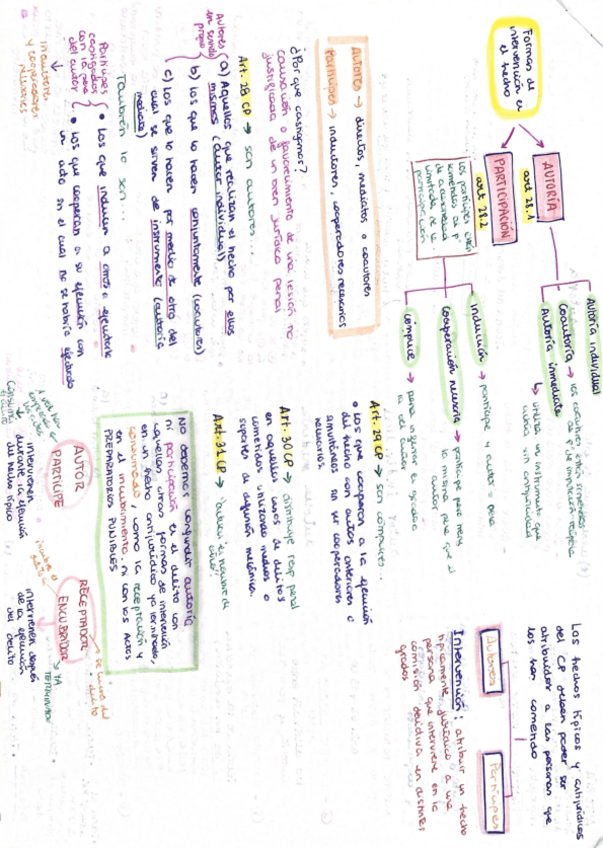 Los hechos típicos y antijurídicos
del CP deben poder ser
atribuidos a las personas que
los han cometido
Autores
Partícipes
Intervención: atribuir un hecho
típicamente jurídico a una
persona que interviene en la
comisión delictiva en distintos
grados
Formas de
intervención en
el hecho
AUTORÍA
art 28.1
PARTICIPACIÓN
art 28.2
Autoría individual
Coautoría → los coautores están sometidos
al pº de imputación recíproca
Autoría inmediata
↳ utiliza un instrumento que
actúa sin culpabilidad
Los partícipes están
sometidos al pº
de accesoriedad
limitada de la
participación
inducción → partícipe y autor = pena
cooperación necesaria → partícipe pero tiene
la misma pena que el
autor
cómplice → pena inferior en grado a
la del autor
Autores → directos, mediatos o coautores
Partícipes → inductores, cooperadores necesarios
¿Por qué castigamos?
causación o favorecimiento de una lesión no
justificada de un bien jurídico penal
Art. 28 CP → son autores...
Autores
en sentido
propio
a) Aquellos que realizan el hecho por ellos
mismos (autor individual)
b) los que lo hacen conjuntamente (coautores)
c) los que lo hacen por medio de otro del
cual se sirven de instrumento (autoría
mediata)
También lo son...
Partícipes
castigados
con la pena
del autor
• Los que inducen a otros a ejecutarlo
• Los que cooperan a su ejecución con
un acto sin el cual no se habría efectuado
inductores
y cooperadores
necesarios
Art. 29 CP → son cómplices...
• Los que cooperan a la ejecución
del hecho con actos anteriores o
simultáneos sin ser cooperadores
necesarios
Art. 30 CP → distribuye resp penal
en aquellos casos de delitos
cometidos utilizando medios o
soportes de difusión mecánica.
Art. 31 CP → "actuar en nombre de
otro".
No debemos confundir autoría
ni participación en el delito con
aquellas otras formas de intervención
en un hecho antijurídico ya terminado,
consumado, como la receptación y
en el encubrimiento, ni con los ACTOS
PREPARATORIOS PUNIBLES
AUTOR
PARTÍCIPE
intervienen
durante la ejecución
del hecho típico
RECEPTADOR
ENCUBRIDOR
se lucra del
delito
YA
TERMINADO
intervienen después
de la ejecución
del delito